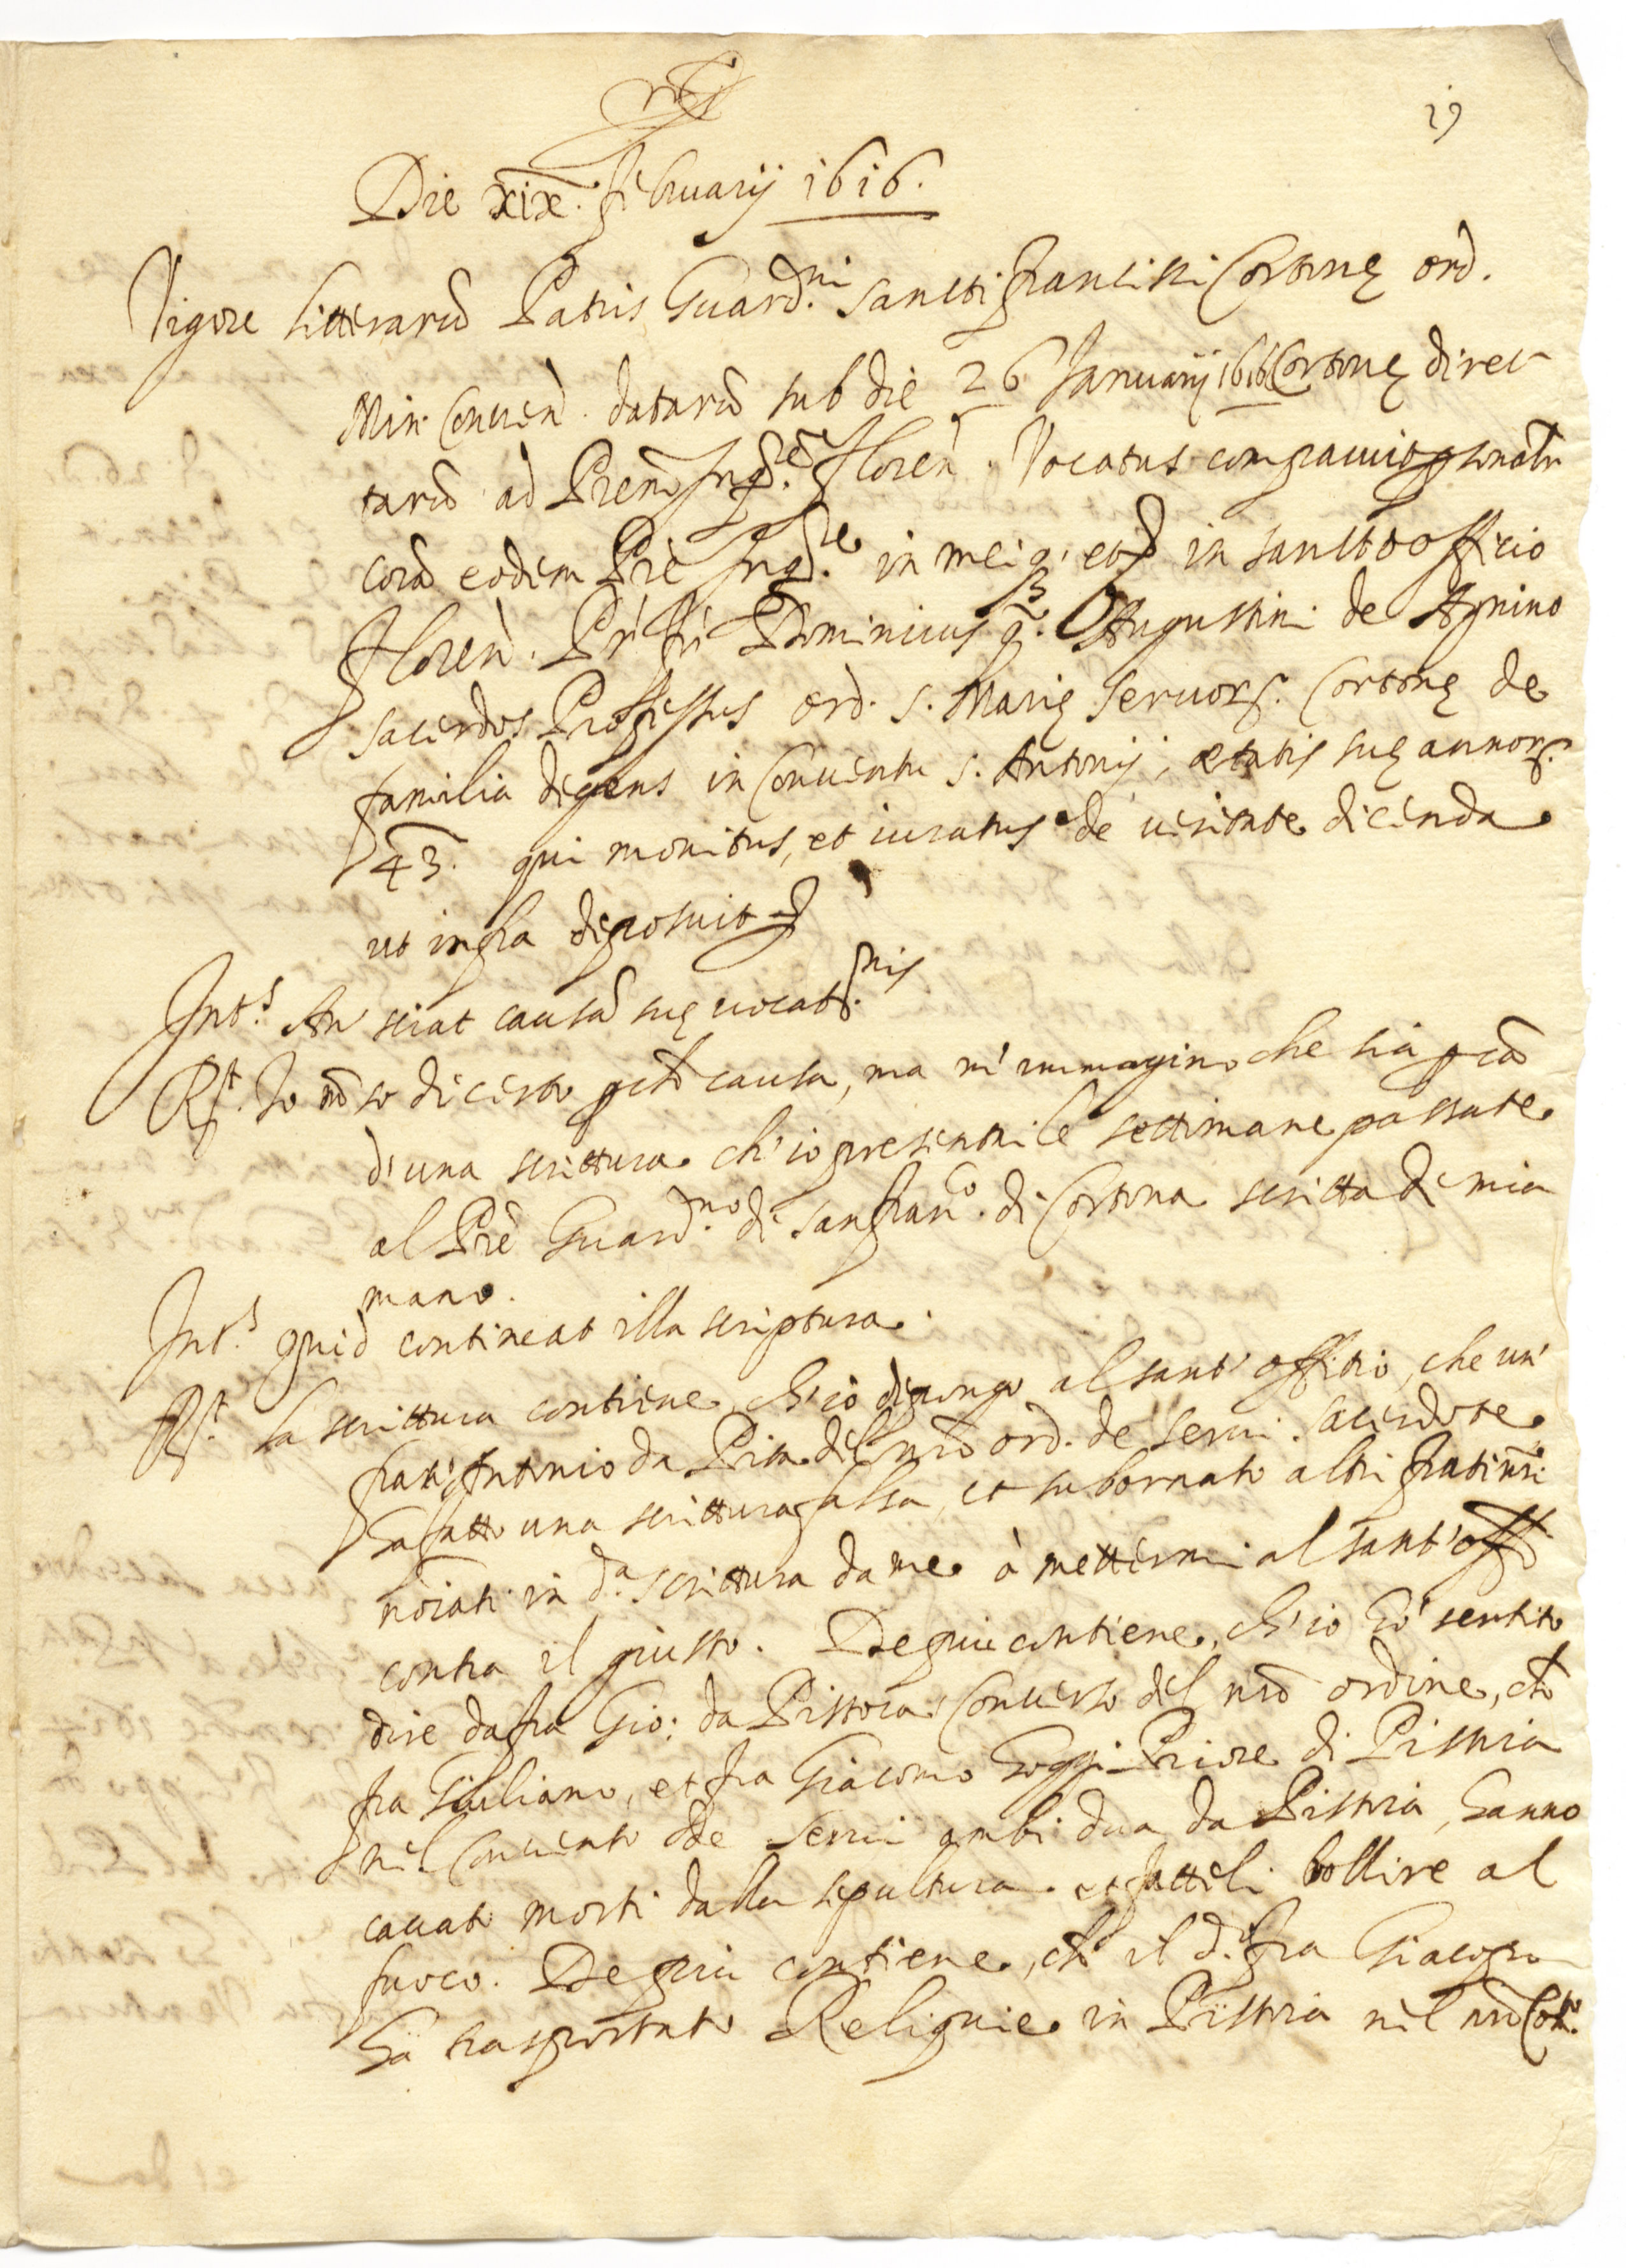 19
Die xix. februarij 1616.
Vigore litterarū Patris Guardni. sancti francisci Cortonę ord.
Min. Conuen. datarū sub die 26 Januarij 1616 Cortonę direc
tarū ad Prem Inqrem. Floren. Vocatus comparuit psonalr
corā eodem Pre Inqre. in mei q. etc in sancto officio
Floren. Pr fr Dominicus q. Augustini de Agnino
sacerdos Professus ord. s. Marię Seruorz. Cortonę de
familia degens in Conuentu s. Antonij, ętatis suę annorz.
43. qui monitus, et iuratus de ueritate dicenda
ut infra deposuit etc
Ints. An sciat causā suę uocatnis
Rt. Io nō so di certo pchè causa, ma m'immagino che sia p cā
d'una scrittura ch'io presentai le settimane passate
al Prè Guardno. di San franco. di Cortona scritta di mia
mano.
Int.s quid contineat illa scriptura.
Rt. La scrittura contiene, ch'io depongo al sant'offitio, che un'
frat'Antonio da Pisa del nrō ord. de serui sacerdote
ha fatto una scrittura falsa, et subornato altri frati nri
noiati in da. scrittura da me à mettermi al sant'offo
contra il giusto. De più contiene, ch'io hò sentito
dire da fra Gio: da Pistoia Conuerso del nrō ordine, chè
fra Giuliano, et fra Giacomo Poggi Priore di Pistoia
nel Conuento de Serui ambi dua da Pistoia, hanno
cauati morti dalla sepultura et fatteli bollire al
fuoco. De più contiene, chè il d. fra Giacopo
ha trasportato Reliquie in Pistoia nel nrō Conto.